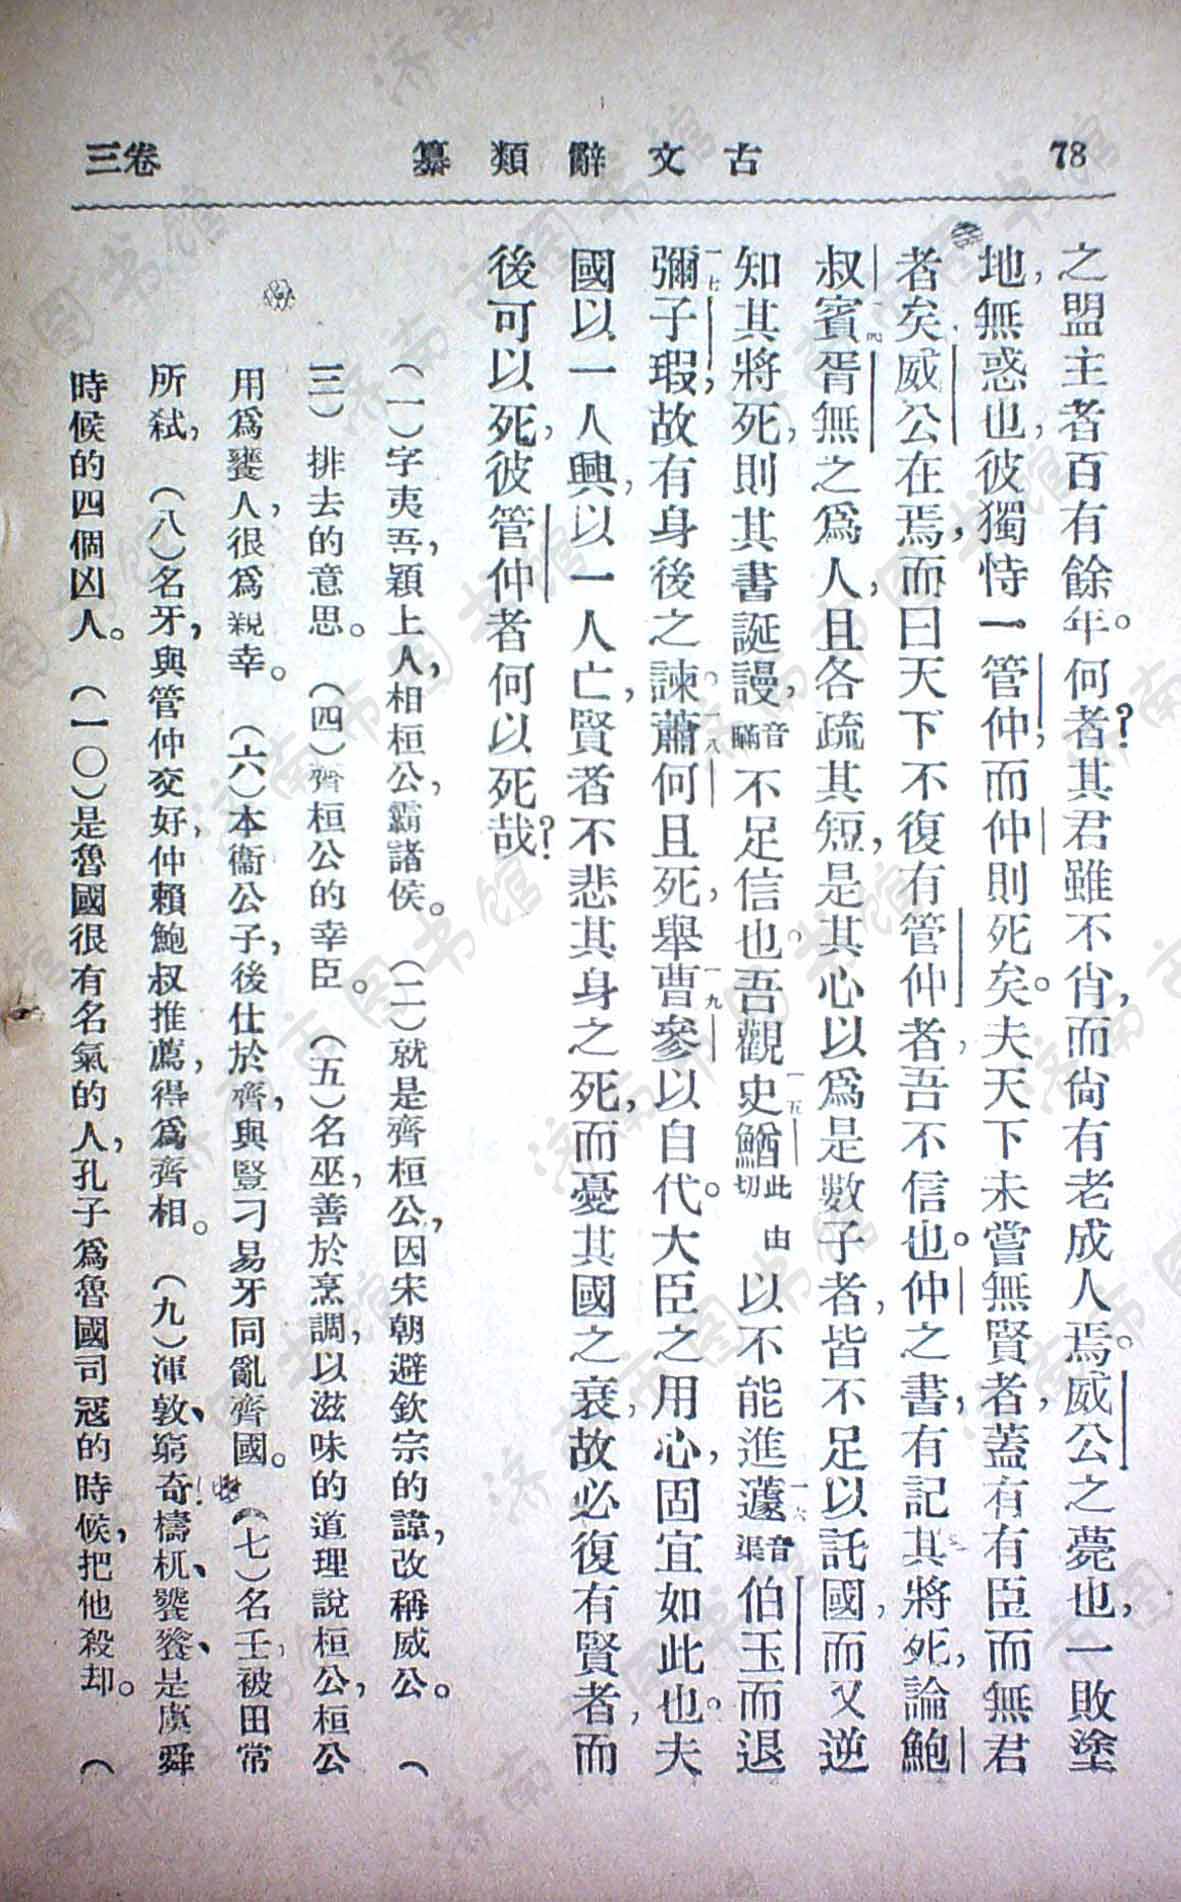 78
古文辭類纂
卷三
之盟主者百有餘年。何者?其君雖不肖,而尙有老成人焉。威公之薨也,一敗塗
地,無惑也,彼獨恃一管仲,而仲則死矣。夫天下未嘗無賢者,蓋有有臣而無君
者矣。威公在焉,而曰天下不復有管仲者,吾不信也。仲之書,有記其將死,論鮑
叔賓胥無之爲人,且各疏其短,是其心以爲是數子者,皆不足以託國,而又逆
知其將死,則其書誕謾,音瞞不足信也。吾觀史鰌此由切以不能進蘧音渠伯玉而退
彌子瑕,故有身後之諫。蕭何且死,舉曹參以自代。大臣之用心,固宜如此也。夫
國以一人興,以一人亡,賢者不悲其身之死,而憂其國之衰,故必復有賢者,而
後可以死,彼管仲者,何以死哉?
(一)字夷吾,潁上人,相桓公,霸諸侯。 (二)就是齊桓公,因宋朝避欽宗的諱,改稱威公。 (
三)排去的意思。 (四)齊桓公的幸臣。 (五)名巫,善於烹調,以滋味的道理說桓公,桓公
用爲饔人,很爲親幸。 (六)本衞公子,後仕於齊,與豎刁易牙同亂齊國。 (七)名壬,被田常
所弒, (八)名牙,與管仲交好,仲賴鮑叔推薦,得爲齊相。 (九)渾敦、窮奇、檮杌、饕餮、是虞舜
時候的四個凶人。 (一〇)是魯國很有名氣的人,孔子爲魯國司寇的時候,把他殺却。 (